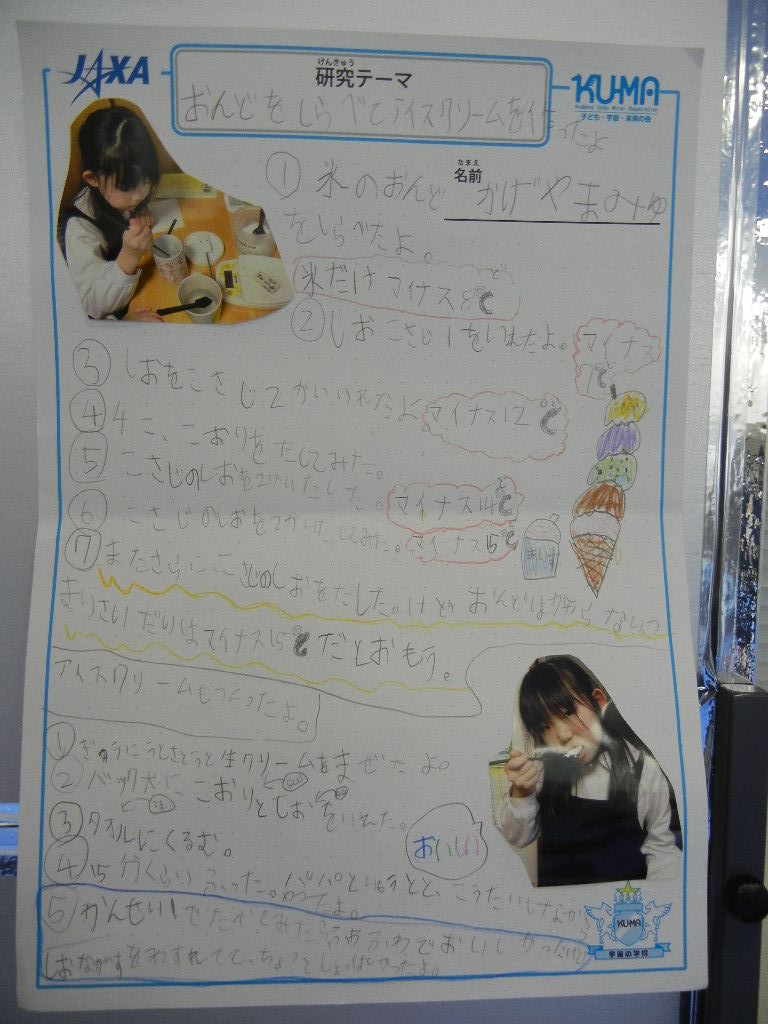 JAXA
けんきゅう
研究テーマ
KU-MA
子ども・宇宙・未来の会
おんどをしらべてアイスクリームを作ったよ
なまえ
名前
かげやまみゆ
① 氷のおんど
をしらべたよ。
氷だけマイナス8℃
② しおこさじ1をいれたよ。
マイナス
7℃
③ しおをこさじ2かいいれたよ
マイナス12℃
④ こおりをたしてみた。
⑤ こさじのしおを2かいたした。
マイナス14℃
⑥ こさじのしおを2かいたしてみた。
マイナス15℃
⑦ またさらにこさじのしおをたしたけどおんどはかわらない
だとおもう。
アイスクリームもつくったよ。
① ぎゅうにゅうとさとうと生クリームをまぜたよ。
② バック大にこおりとしおをいれた。
③ タオルにくるむ。
おいしい
④ 15分くらいふった。パパといもうとと、こうたいしながら
やったよ。
⑤ かんせい!でたべてみたらふわふわでおいしかったけど
しおながすをわすれてて、ちょっとしょっぱかったよ。
KU-MA
宇宙の学校